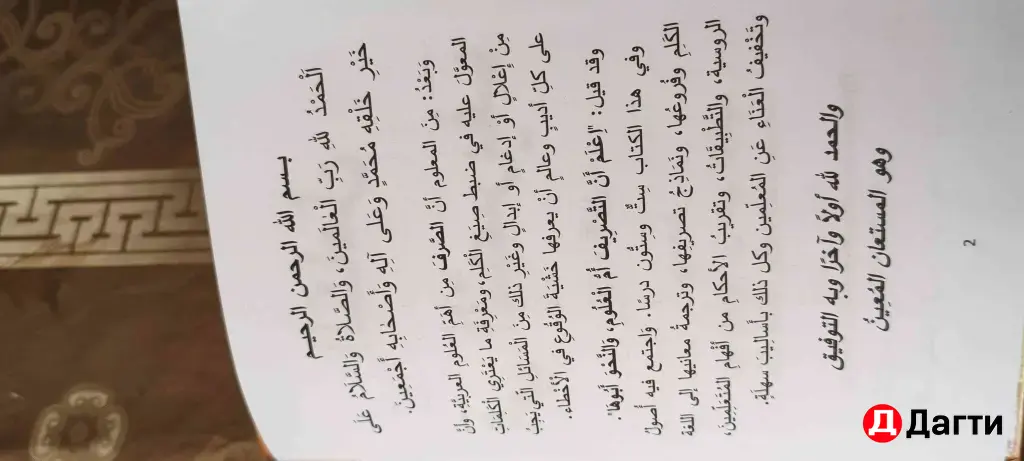 بسم الله الرحمن الرحيم
اَلْحَمْدُ لِلّٰهِ رَبِّ الْعَالَمِينَ، وَالصَّلَاةُ وَالسَّلَامُ عَلَى
خَيْرِ خَلْقِهِ مُحَمَّدٍ وَعَلَى آلِهِ وَأَصْحَابِهِ أَجْمَعِينَ.
وَبَعْدُ: مِنَ المعلوم أَنَّ الصَّرفَ مِن أَهَمِّ العُلوم العربيّةِ، وأنَّ
المعوَّلَ عليه في ضبط صِيَغِ الْكَلِمِ، ومَعْرِفَةِ ما يَعْتَرِي الكَلِمَاتِ
مِنْ إِعْلالٍ أَوْ إِدغامٍ أو إبدالٍ وَغَيْرِ ذلك مِنَ المَسَائل الَّتي يَجِبُ
على كلِّ أديبٍ وعالمٍ أَنْ يعرفها خَشْيَةَ الْوُقُوعِ في الْأَخْطاء.
وقد قيل: "اِعْلَمْ أَنَّ التَّصْرِيفَ أُمُّ الْعُلُومِ، وَالنَّحْوَ أَبُوهَا".
وفي هذا الكتاب سِتٌّ وسِتُّون درسًا. واجتمع فيه أصولُ
الكَلِمِ وفُرُوعُها، ونَمَاذِجُ تصريفِها، وترجمةُ معانيها إلى اللغة
الروسية، والتَّطْبِيقَاتُ، وتقريبُ الأحكامِ من أفهامِ المُتَعَلِّمِينَ،
وتَخْفِيفُ الْعَنَاءِ عَنِ المُعلِّمِين وكل ذلك بأساليبَ سهلةٍ.
والحمد لله أولاً وآخرًا وبه التوفيق
وهو المستعان المُعِينُ
2
Д Дагти